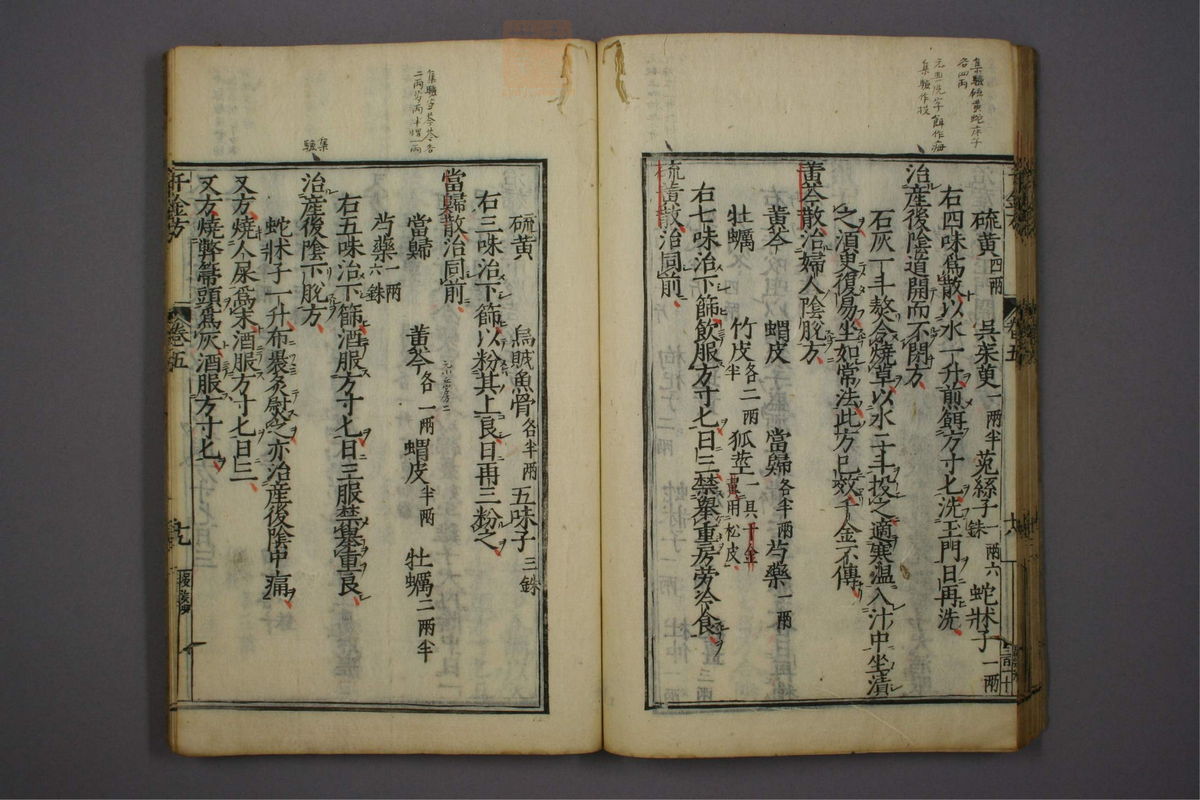 集驗硫黃蛇床子
各四兩
集驗作技
硫黃四兩 吳茱萸一兩半 菟絲子一兩六銖 蛇牀子一兩
右四味爲散以水一升煎餌方寸匕洗玉門日再洗
治產後陰道開而不閉方
石灰一斗熬令燒草以水二斗投之適寒溫入汁中坐漬
之須臾復易坐如常法此方已效千金不傳
黃芩散治婦人陰脫方
黃芩 蝟皮 當歸各半兩 芍藥一兩
牡蠣 竹皮各二兩半 狐莖一具千金翼用松皮
右七味治下篩飲服方寸匕日三禁舉重房勞冷食
硫黃散治同前
千金方 卷五 十八
三百一十
集驗當
二兩芍 兩半蝟一兩
集驗
硫黃 烏賊魚骨各半兩 五味子三銖
右三味治下篩以粉其上良日再三粉之
當歸散治同前
當歸 黃芩各一兩 蝟皮半兩 牡蠣二兩半
芍藥一兩六銖
右五味治下篩酒服方寸匕日三服禁舉重良
治產後陰下脫方
蛇牀子一升布裹炙熨之亦治產後陰中痛
又方燒人屎爲末酒服方寸匕日三
又方燒弊帚頭爲灰酒服方寸匕
千金方 卷五 十九